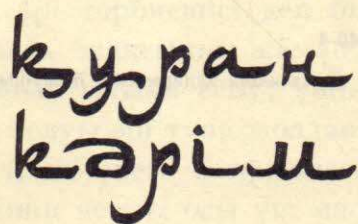 құран
кәрім